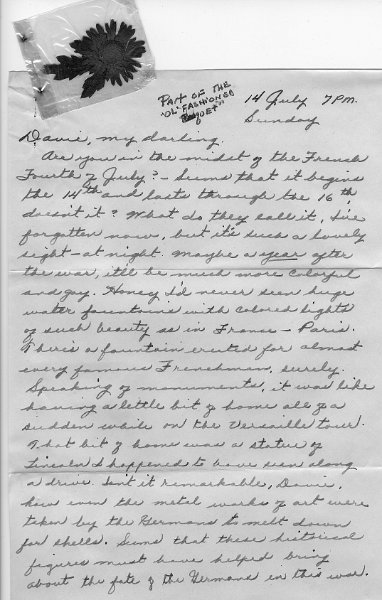 Part of the
"Ol' Fashioned
Boquet"
14 July 7 P.M.
Sunday
Davie, my darling,
Are you in the midst of the French
Fourth of July? – Seems that it begins
the 14th and lasts through the 16th,
doesn't it? What do they call it, I've
forgotten now, but it's such a lovely
sight – at night. Maybe a year after
the war, it'll be much more colorful
and gay. Honey, I'd never seen huge
water fountains with colored lights
of such beauty as in France – Paris.
There's a fountain erected for almost
every famous Frenchman, surely.
Speaking of monuments, it was like
having a little bit of home all of a
sudden while on the Versaille tour.
That bit of home was a statue of
Lincoln I happened to have seen along
a drive. Isn't it remarkable, Davie,
how even the metal works of art were
taken by the Germans to melt down
for shells. Seems that these historical
figures must have helped bring
about the fate of the Germans in this war.